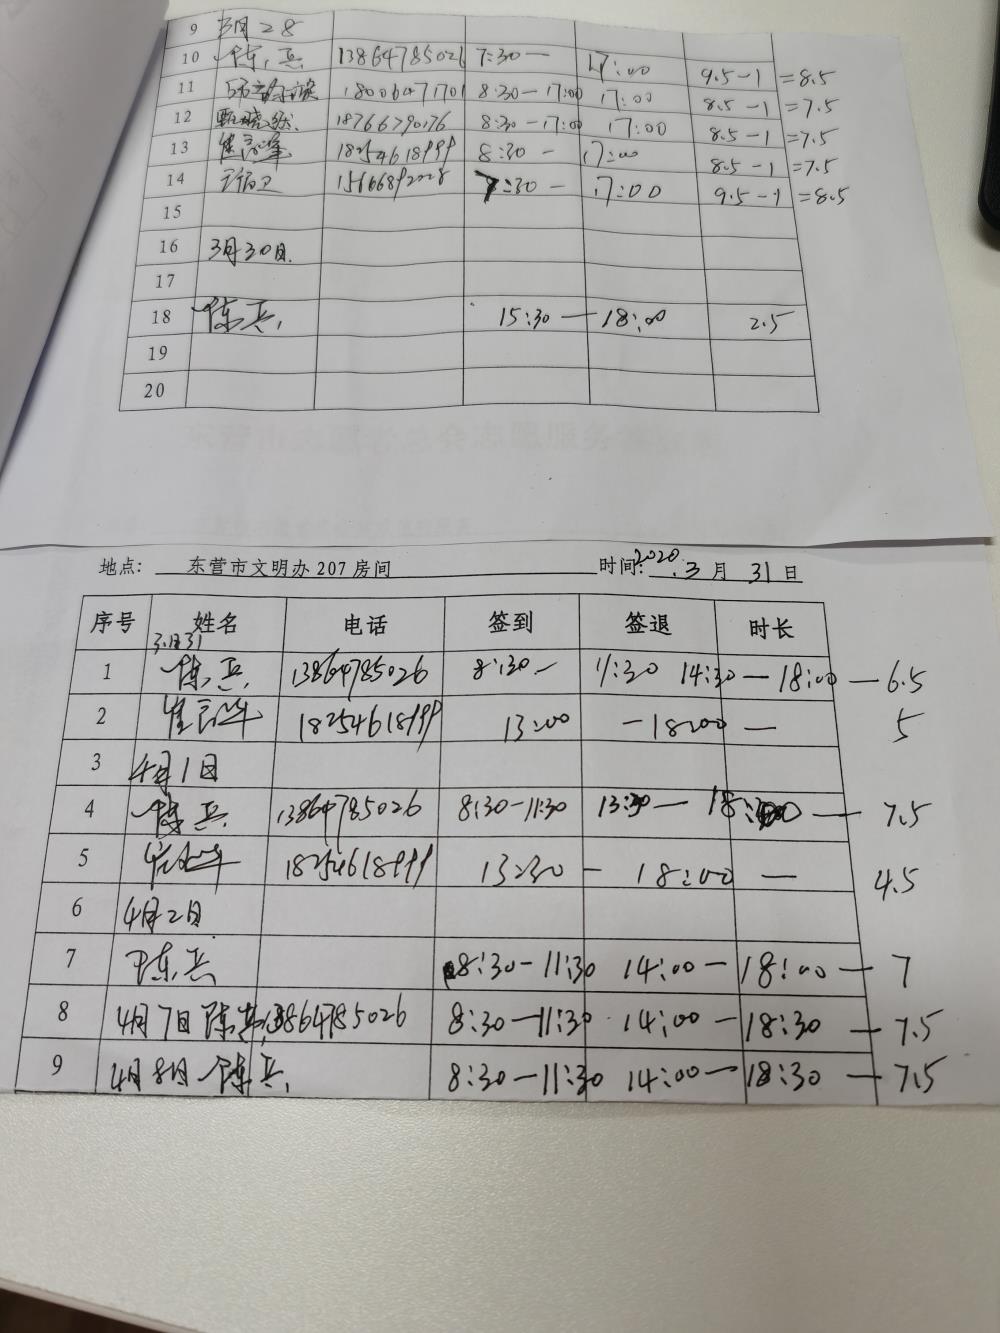 9 3月28
10 陈兵 13864785026 7:30— 17:00 9.5-1 =8.5
11 18006471701 8:30—17:00 17:00 8.5-1 =7.5
12 18766790176 8:30—17:00 17:00 8.5-1 =7.5
13 18254618999 8:30— 17:00 8.5-1 =7.5
14 7:30— 17:00 9.5-1 =8.5
15
16 3月30日
17
18 陈兵 15:30— 18:00 2.5
19
20
地点: 东营市文明办207房间 时间: 2020.3月31日
序号 姓名 电话 签到 签退 时长
3月31
1 陈兵 13864785026 8:30— 11:30 14:30—18:00—6.5
2 18254618999 13:00 —18:00— 5
3 4月1日
4 陈兵 13864785026 8:30—11:30 13:30—18:00—7.5
5 18254618999 13:30— 18:00— 4.5
6 4月2日
7 陈兵 8:30—11:30 14:00—18:00—7
8 4月7日 陈兵 13864785026 8:30—11:30 14:00—18:30—7.5
9 4月8日 陈兵 8:30—11:30 14:00—18:30—7.5